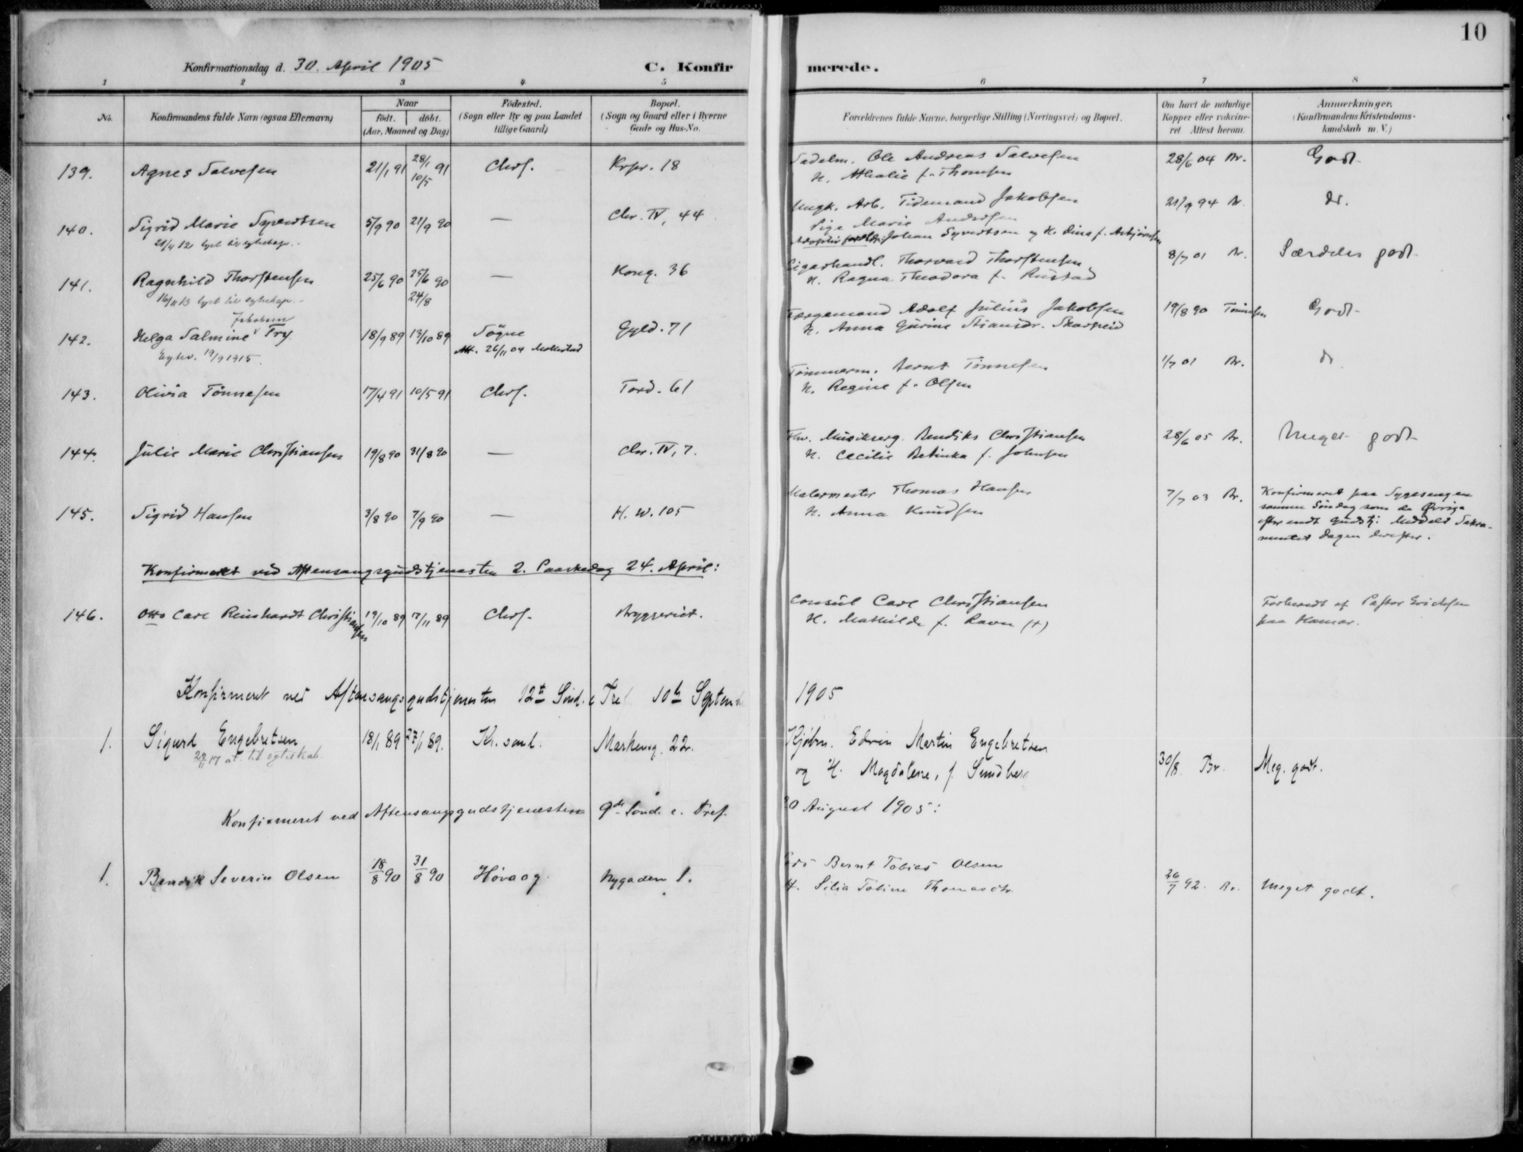 10
Konfirmationsdag d. 30. April 1905
C. Konfirmerede.
1 2 3 4 5 6 7 8
No.
Konfirmandens fulde Navn (ogsaa Efternavn)
Naar
født. døbt.
(Aar, Maaned og Dag)
Fødested.
(Sogn eller By og paa Landet
tillige Gaard)
Bopæl.
(Sogn og Gaard eller i Byerne
Gade og Hus-No.
Forældrenes fulde Navne, borgerlige Stilling (Næringsvei) og Bopæl.
Om havt de naturlige
Kopper eller vakcine-
ret Attest herom.
Anmerkninger.
(Konfirmandens Kristendoms-
kundskab m. V.)
139. Agnes Salvesen 21/1 91 28/1 91 10/5 Chrs. Krpr. 18
Sadelm. Ole Andreas Salvesen
H. Athalie f. Thomsen
28/6 04 Br. Godt.
140. Sigrid Marie Syvertsen 5/9 90 21/9 90 — Chr. IV, 44
Arb. Tidemand Jakobsen
Pige Marie Andersen
Johan Syvertsen og H. Dina f. Asbjørnsen
21/9 94 Br. do.
141. Ragnhild Thorstensen 25/6 90 25/6 90 24/8 — Kong. 36
Cigarhandl. Thorvard Thorstensen
H. Ragna Theodora f. Rustad
8/7 01 Br. Særdeles godt.
Jakobsen
142. Helga Salmine Fry 18/9 89 13/10 89 Søgne Gyld. 71
Att. 26/11 04
Egtev. 19/9 1915.
Færgemand Adolf Julius Jakobsen
H. Anna Gurine Skarpeid
19/8 90 Godt.
143. Olivia Tønnesen 17/4 91 10/5 91 Chrs. Tord. 61
Tømmerm. Bernt Tønnesen
H. Regine f. Olsen
1/7 01 Br. do
144. Julie Marie Christiansen 19/8 90 31/8 90 — Chr. IV, 7.
Musikserg. Bendiks Christiansen
H. Cecilie Betinka f. Johnsen
28/6 05 Br. Meget godt
145. Sigrid Hansen 3/8 90 7/9 90 — H. W. 105
Malermester Thomas Hansen
H. Anna Knudsen
7/7 03 Br.
Konfirmeret paa Sygesengen
samme Søndag som de Øvrige
efter endt Gudstj. Meddelt Sakra-
mentet Dagen derefter.
Konfirmeret ved Aftensangsgudstjenesten 2. Paaskedag 24. April:
146. Otto Carl Reinhardt Christiansen 19/10 89 17/11 89 Chrs. Bryggeriet.
Consul Carl Christiansen
H. Mathilde f. Ravn (+)
Forberedt af Pastor Erichsen
paa Hamar.
Konfirmeret ved Aftensangsgudstjenesten 12te Sønd. e Tref 10de Septem 1905
1. Sigurd Engebretsen 18/1 89 Kr. sand. Markensg. 22.
Kjøbm. Edvin Martin Engebretsen
og H. Magdalene, f. Sundberg
30/8 Br. Meg. godt.
Konfirmeret ved Aftensangsgudstjenesten 9de Sønd. e. Tref. 20 August 1905:
1. Bendik Severin Olsen 18/8 90 31/8 90 Høvaag Nygaden 1.
Bernt Tobias Olsen
H. Silia Tobine Thomasdtr
26/7 92. Br. Meget godt.